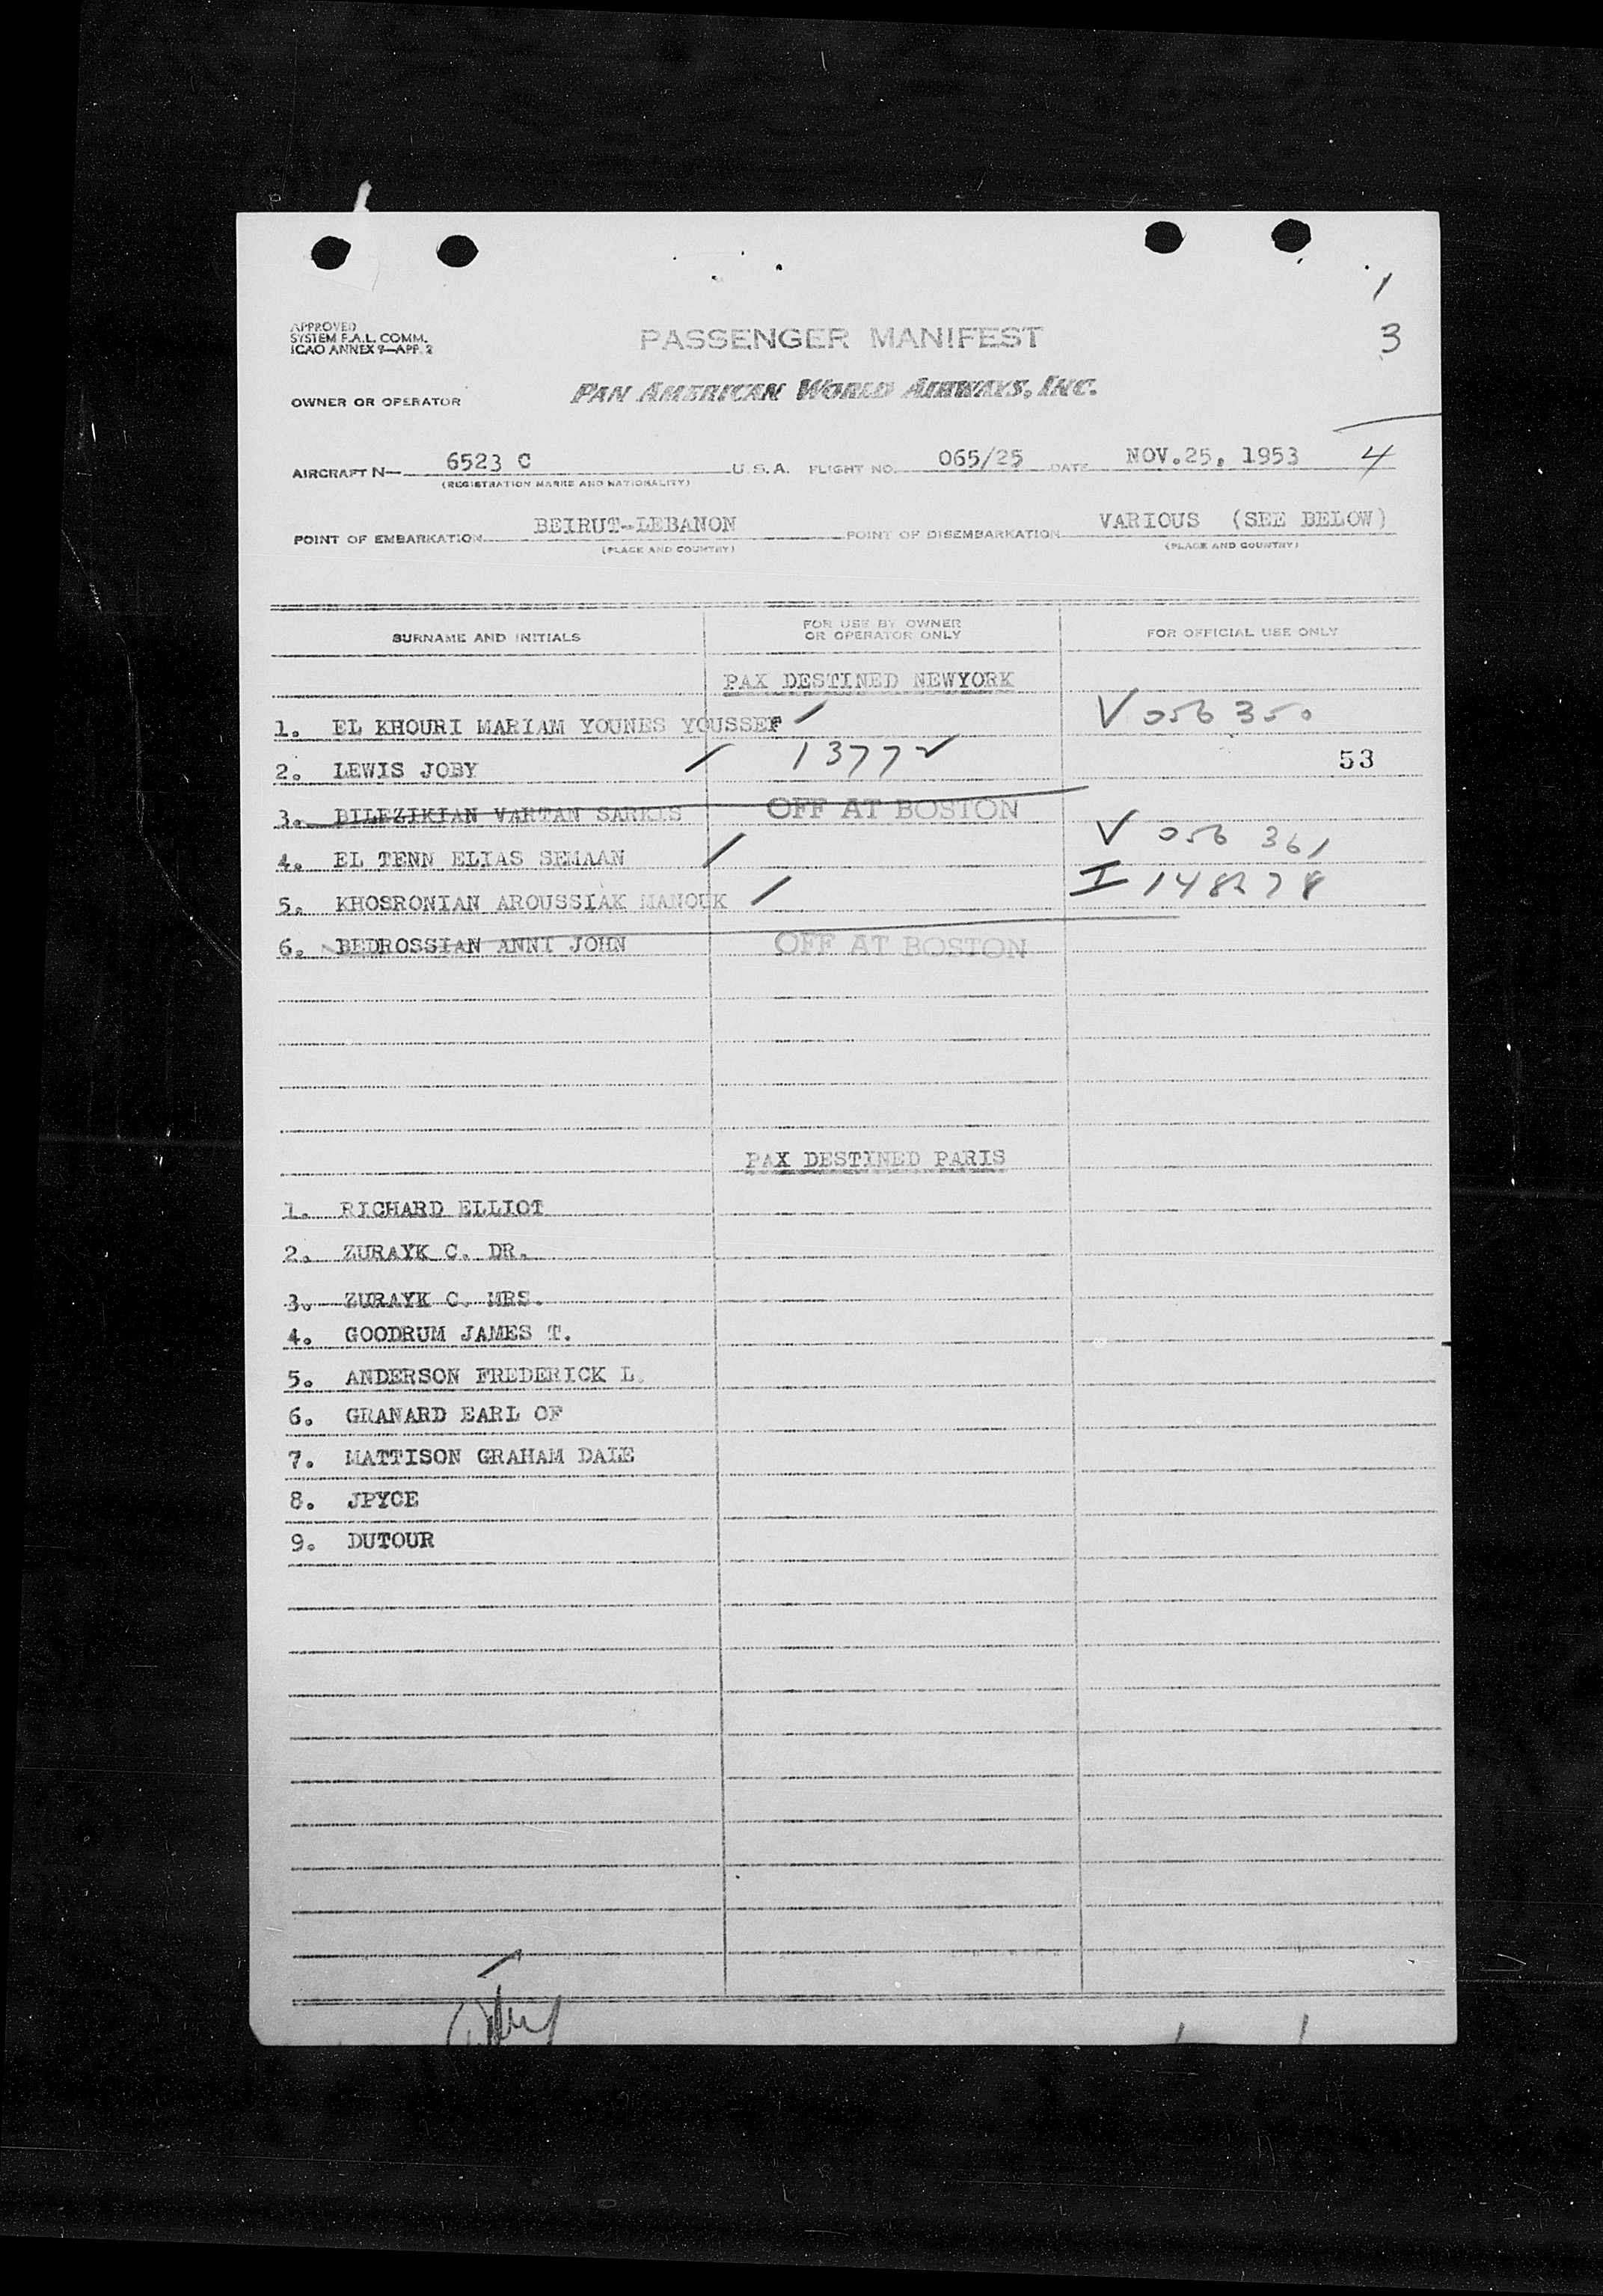 1
3
APPROVED
SYSTEM F.A.L. COMM.
ICAO ANNEX 9—APP. 2
PASSENGER MANIFEST
OWNER OR OPERATOR PAN AMERICAN WORLD AIRWAYS, INC.
AIRCRAFT N— 6523 C U.S.A. FLIGHT NO. 065/25 DATE NOV.25, 1953 4
(REGISTRATION MARKS AND NATIONALITY)
POINT OF EMBARKATION BEIRUT-LEBANON POINT OF DISEMBARKATION VARIOUS (SEE BELOW)
(PLACE AND COUNTRY) (PLACE AND COUNTRY)
SURNAME AND INITIALS FOR USE BY OWNER OR OPERATOR ONLY FOR OFFICIAL USE ONLY
PAX DESTINED NEWYORK
1. EL KHOURI MARIAM YOUNES YOUSSEF V 056 350
2. LEWIS JOBY 1377 53
3. BILEZIKIAN VARTAN SARKIS OFF AT BOSTON
4. EL TENN ELIAS SEMAAN V 056 361
5. KHOSRONIAN AROUSSIAK MANOUK I 148278
6. BEDROSSIAN ANNI JOHN OFF AT BOSTON
PAX DESTINED PARIS
1. RICHARD ELLIOT
2. ZURAYK C. DR.
3. ZURAYK C. MRS.
4. GOODRUM JAMES T.
5. ANDERSON FREDERICK L.
6. GRANARD EARL OF
7. MATTISON GRAHAM DALE
8. JPYCE
9. DUTOUR